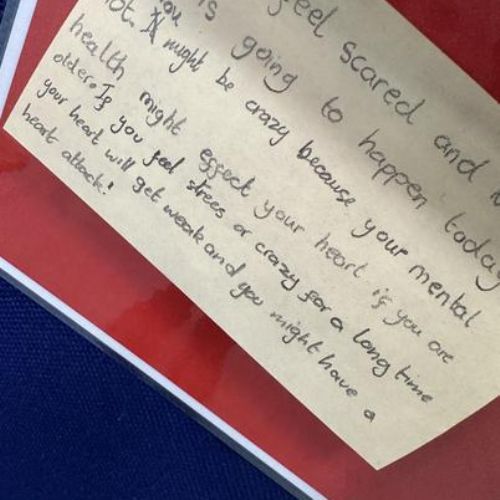 feel scared and
is going to happen today
not. You might be crazy because your mental
health might effect your heart if you are
older. If you feel strees or crazy for a long time
your heart will get weak and you might have a
heart attack!